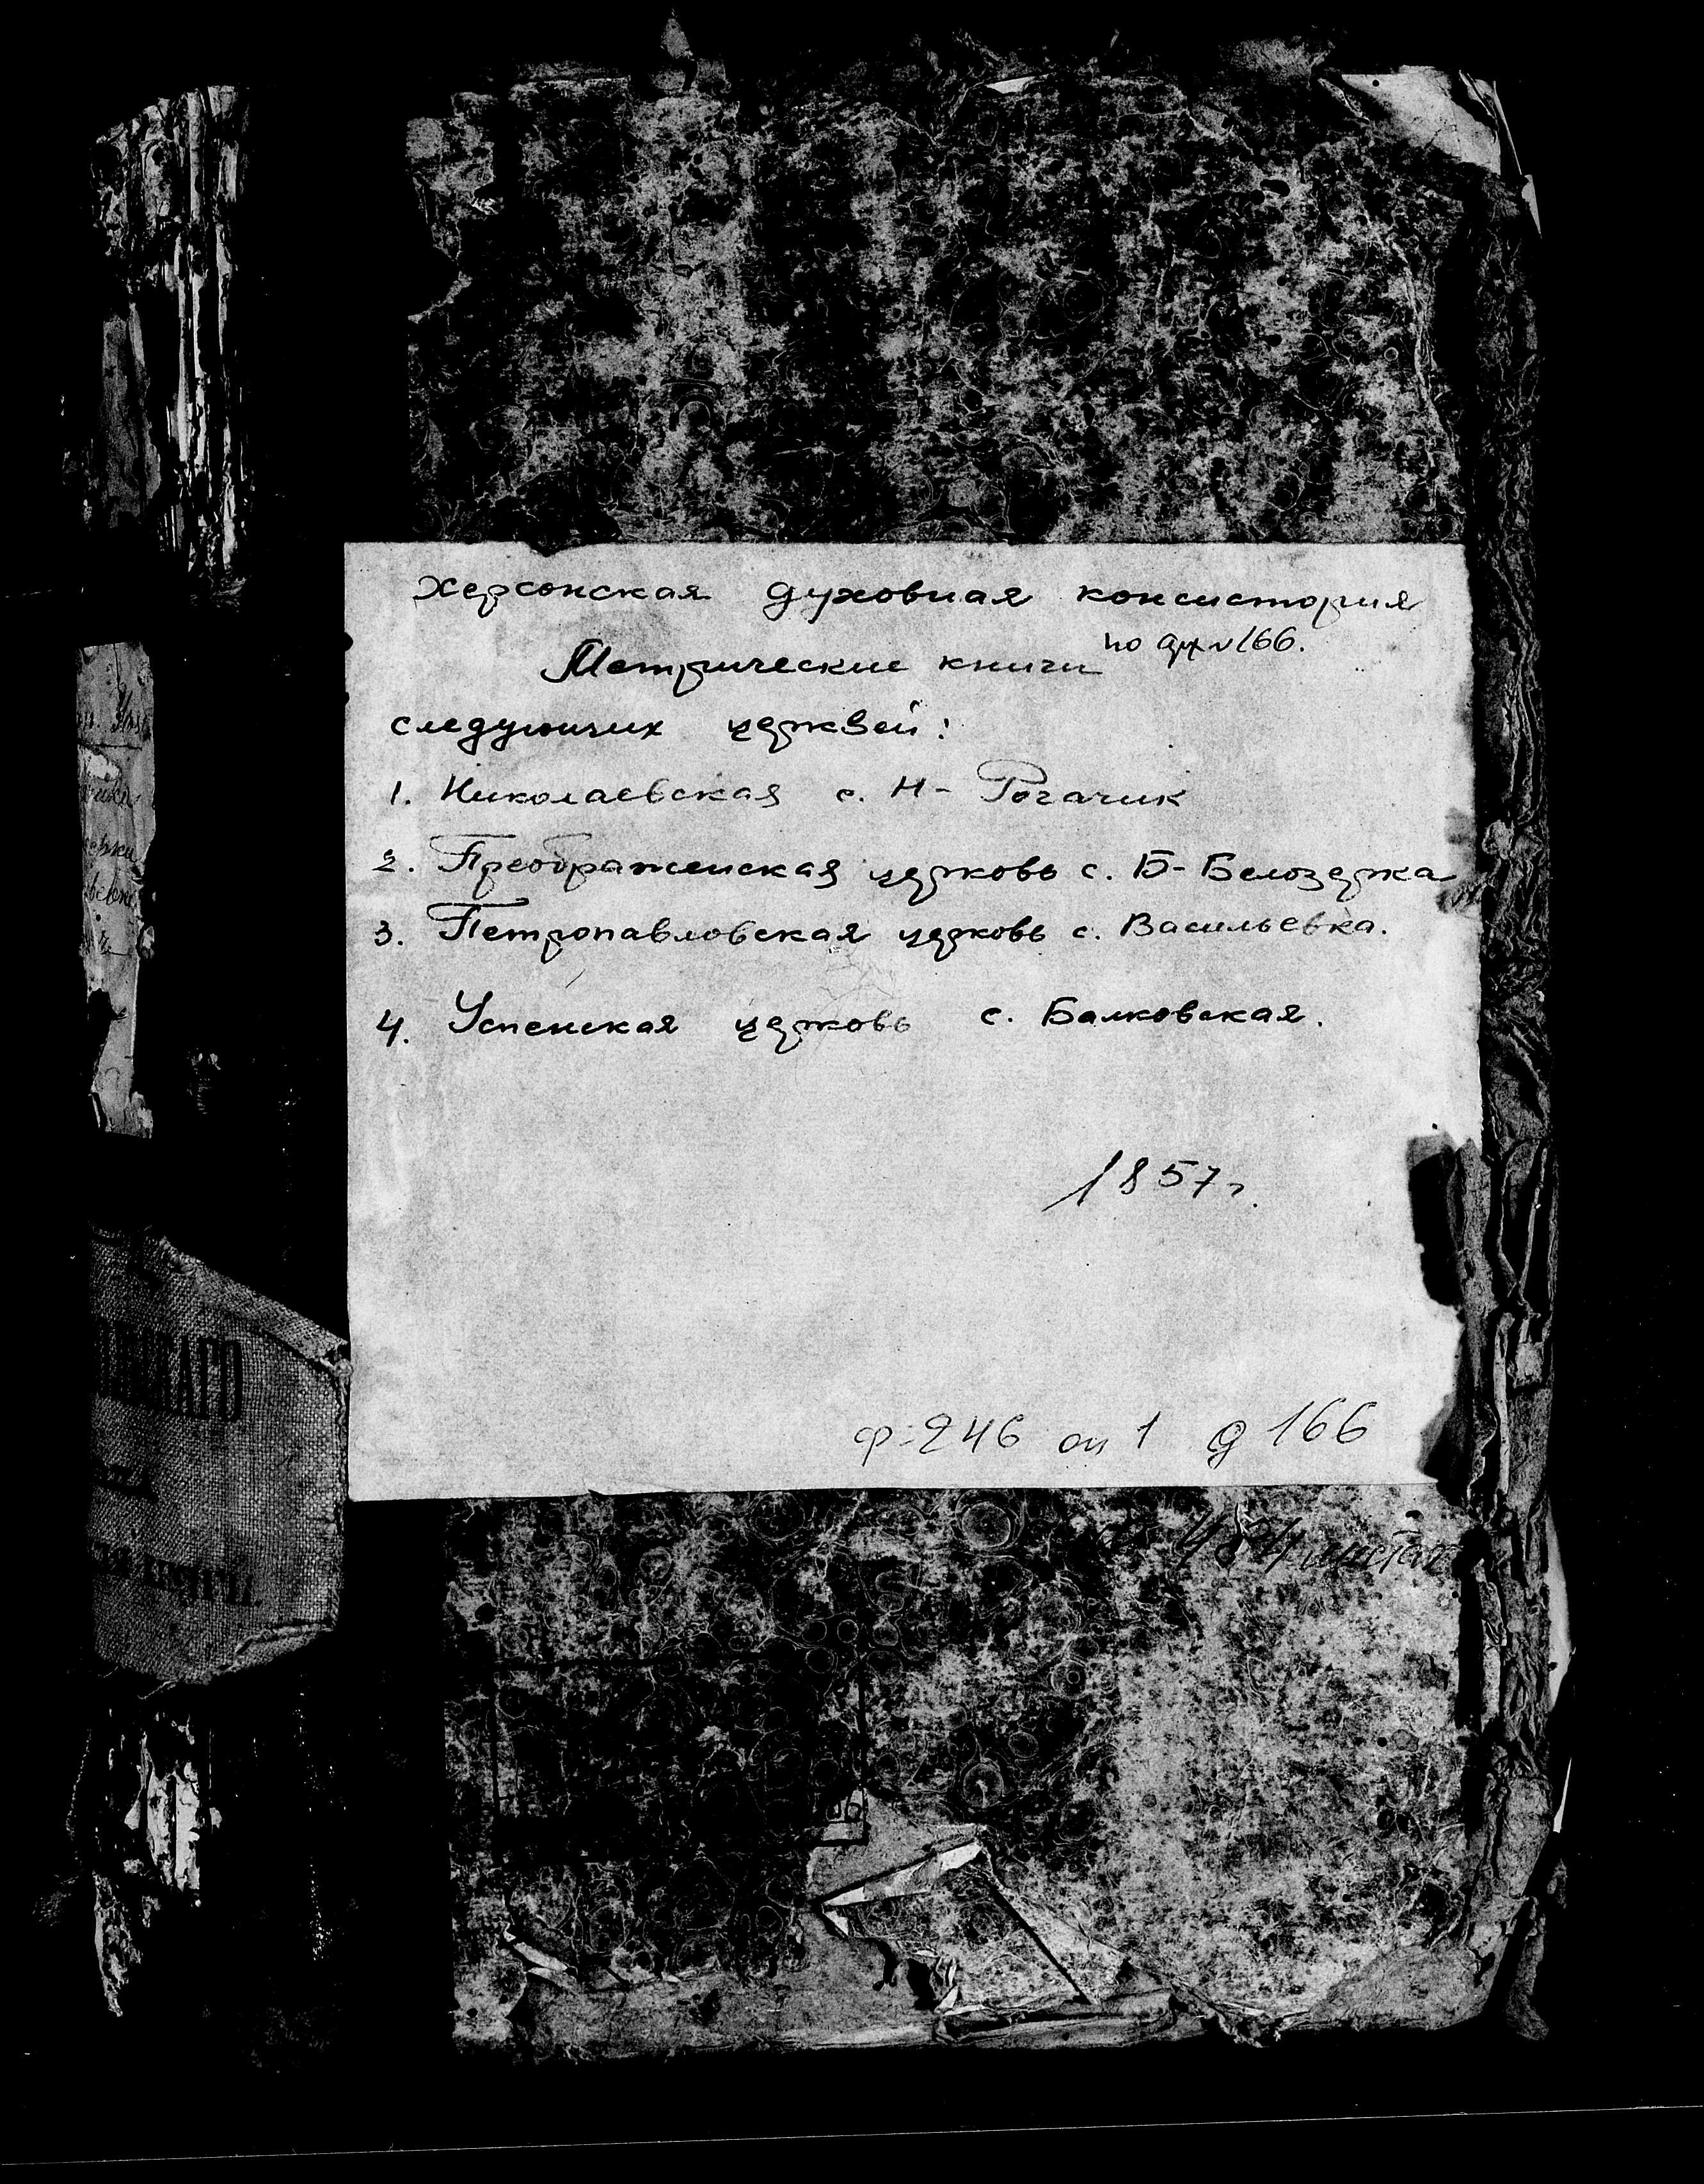 Херсонская духовная консистория
Метрические книги по
166.
следующих церквей:
1. Николаевская с. Н- Рогачик
2. Преображенская церковь с. Б- Белозерка
3. Петропавловская церковь с. Васильевка.
4. Успенская церковь с. Балковская.
1857 г.
ф-246 оп 1 д 166
листах